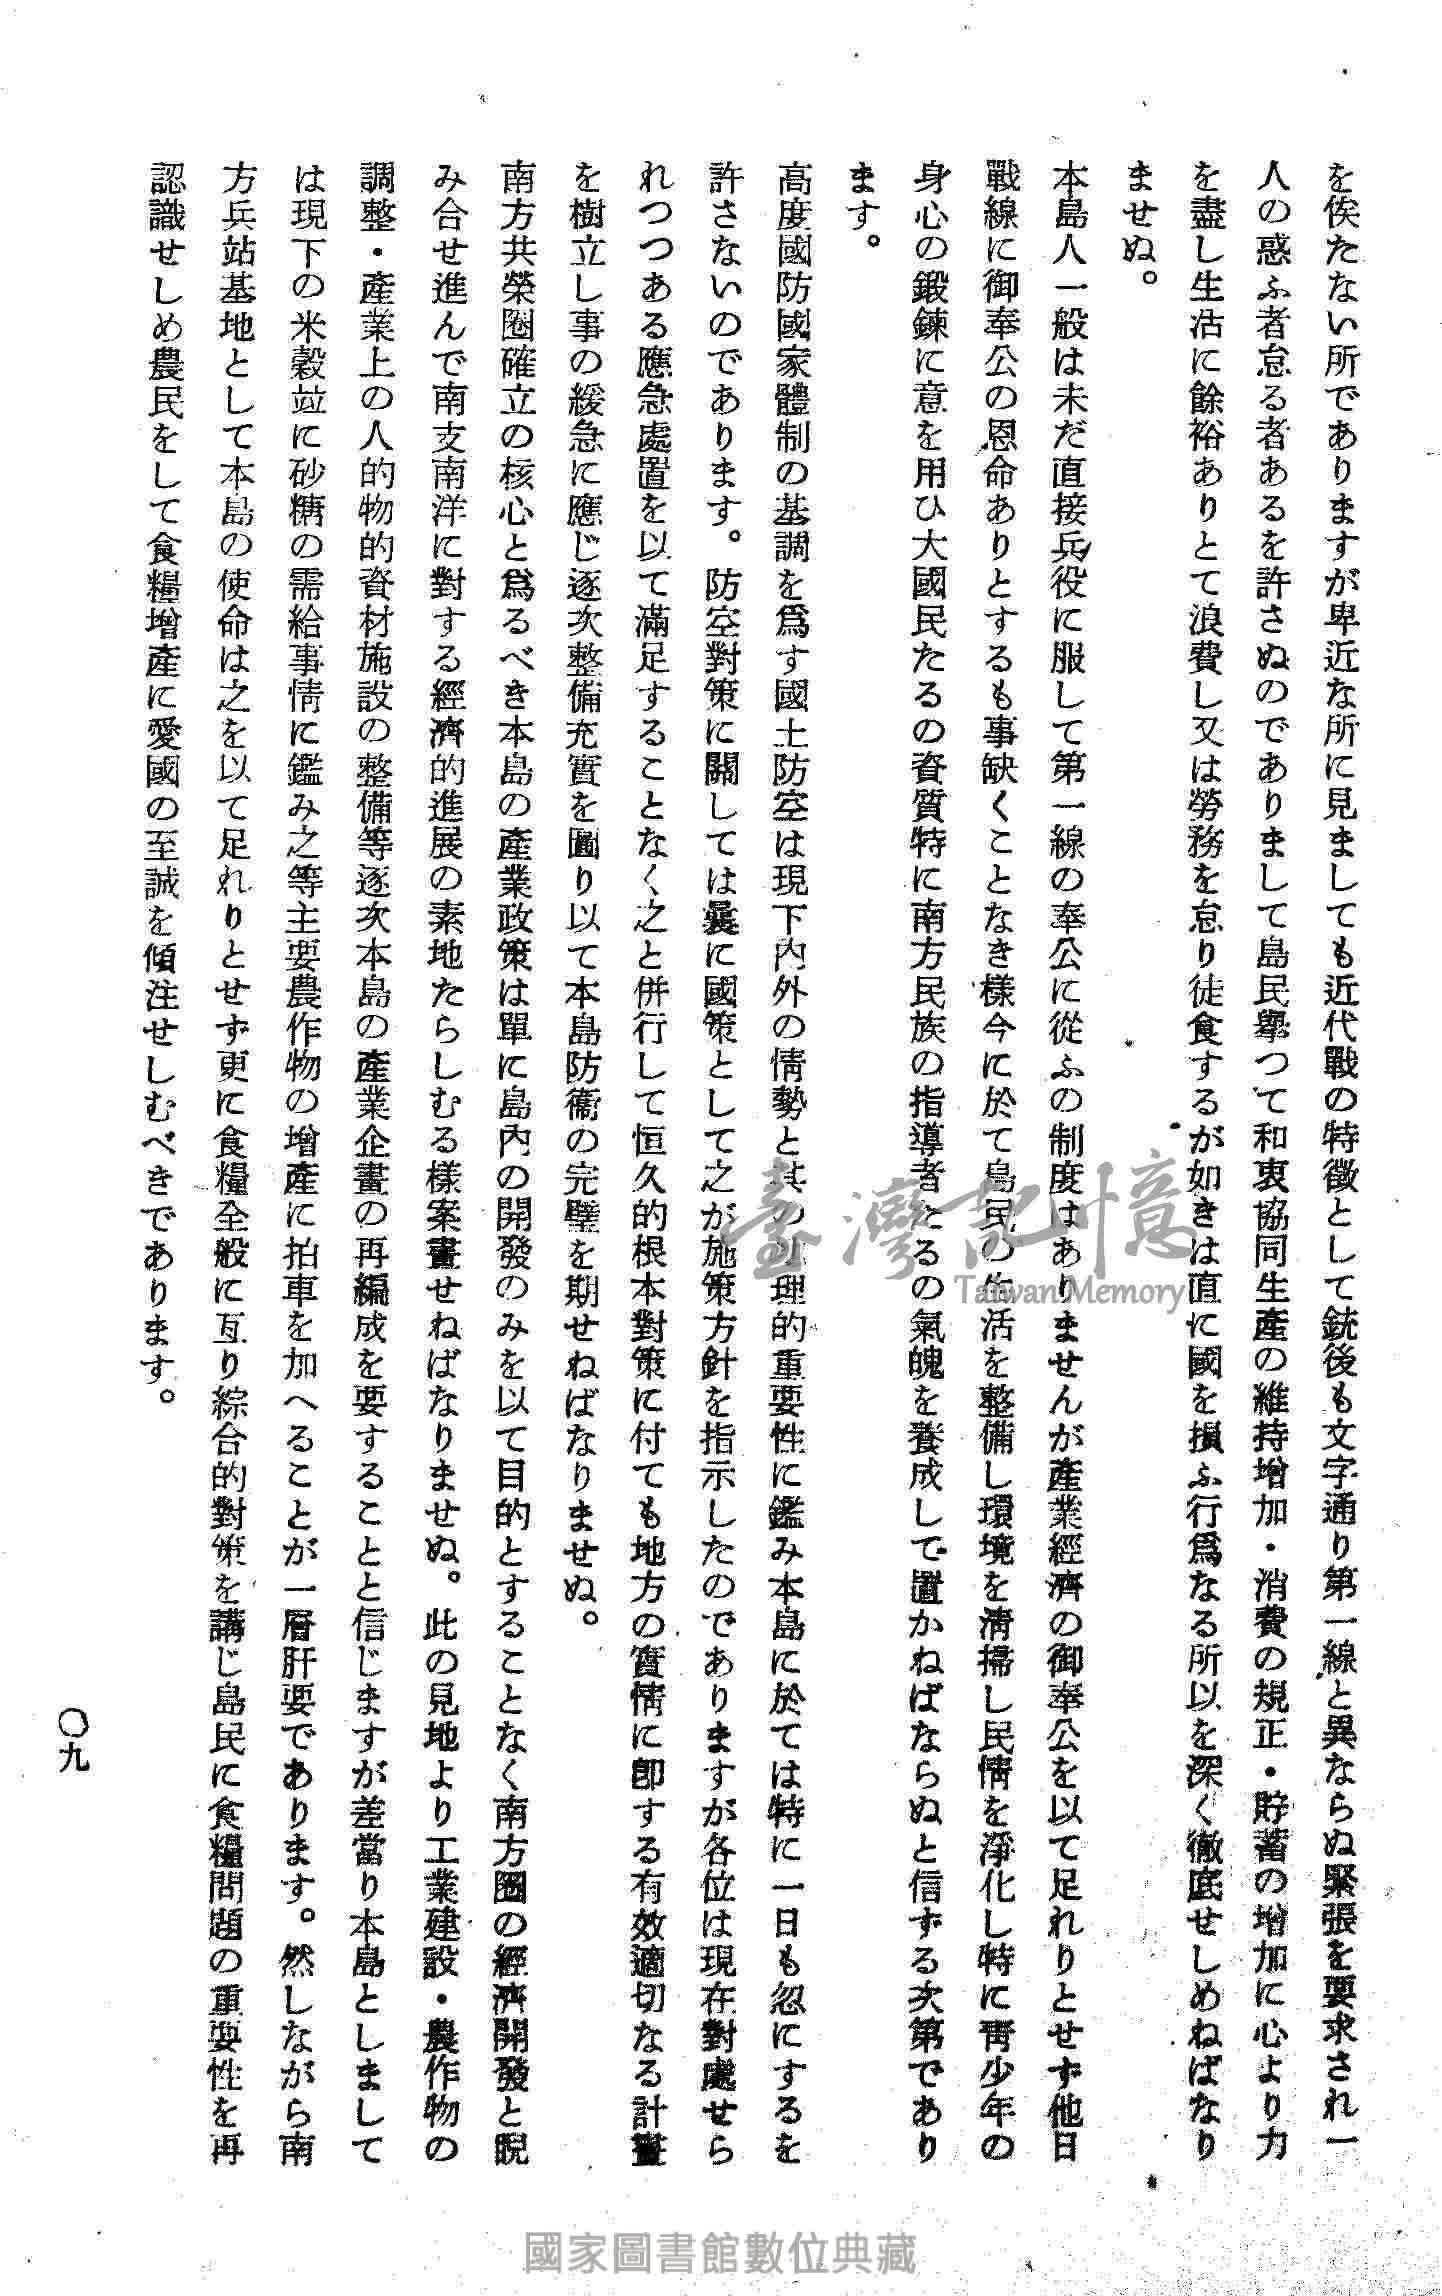 を俟たない所でありますが卑近な所に見ましても近代戰の特徵として銃後も文字通り第一線と異ならぬ緊張を要求され一
人の惑ふ者怠る者あるを許さぬのでありまして島民擧つて和衷協同生產の維持增加・消費の規正・貯蓄の增加に心より力
を盡し生活に餘裕ありとて浪費し又は勞務を怠り徒食するが如きは直に國を損ふ行爲なる所以を深く徹底せしめねばなり
ませぬ。
本島人一般は未だ直接兵役に服して第一線の奉公に從ふの制度はありませんが產業經濟の御奉公を以て足れりとせず他日
戰線に御奉公の恩命ありとするも事缺くことなき樣今に於て島民の生活を整備し環境を淸掃し民情を淨化し特に靑少年の
身心の鍛鍊に意を用ひ大國民たるの資質特に南方民族の指導者たるの氣魄を養成して置かねばならぬと信ずる次第であり
ます。
高度國防國家體制の基調を爲す國土防空は現下內外の情勢と其の地理的重要性に鑑み本島に於ては特に一日も忽にするを
許さないのであります。防空對策に關しては曩に國策として之が施策方針を指示したのでありますが各位は現在對處せら
れつつある應急處置を以て滿足することなく之と併行して恒久的根本對策に付ても地方の實情に卽する有效適切なる計畫
を樹立し事の緩急に應じ逐次整備充實を圖り以て本島防衞の完璧を期せねばなりませぬ。
南方共榮圈確立の核心と爲るべき本島の產業政策は單に島內の開發のみを以て目的とすることなく南方圈の經濟開發と睨
み合せ進んで南支南洋に對する經濟的進展の素地たらしむる樣案畫せねばなりませぬ。此の見地より工業建設・農作物の
調整・產業上の人的物的資材施設の整備等逐次本島の產業企畫の再編成を要することと信じますが差當り本島としまして
は現下の米穀竝に砂糖の需給事情に鑑み之等主要農作物の增產に拍車を加へることが一層肝要であります。然しながら南
方兵站基地として本島の使命は之を以て足れりとせず更に食糧全般に亙り綜合的對策を講じ島民に食糧問題の重要性を再
認識せしめ農民をして食糧增產に愛國の至誠を傾注せしむべきであります。
〇九
臺灣記憶
Taiwan Memory
國家圖書館數位典藏